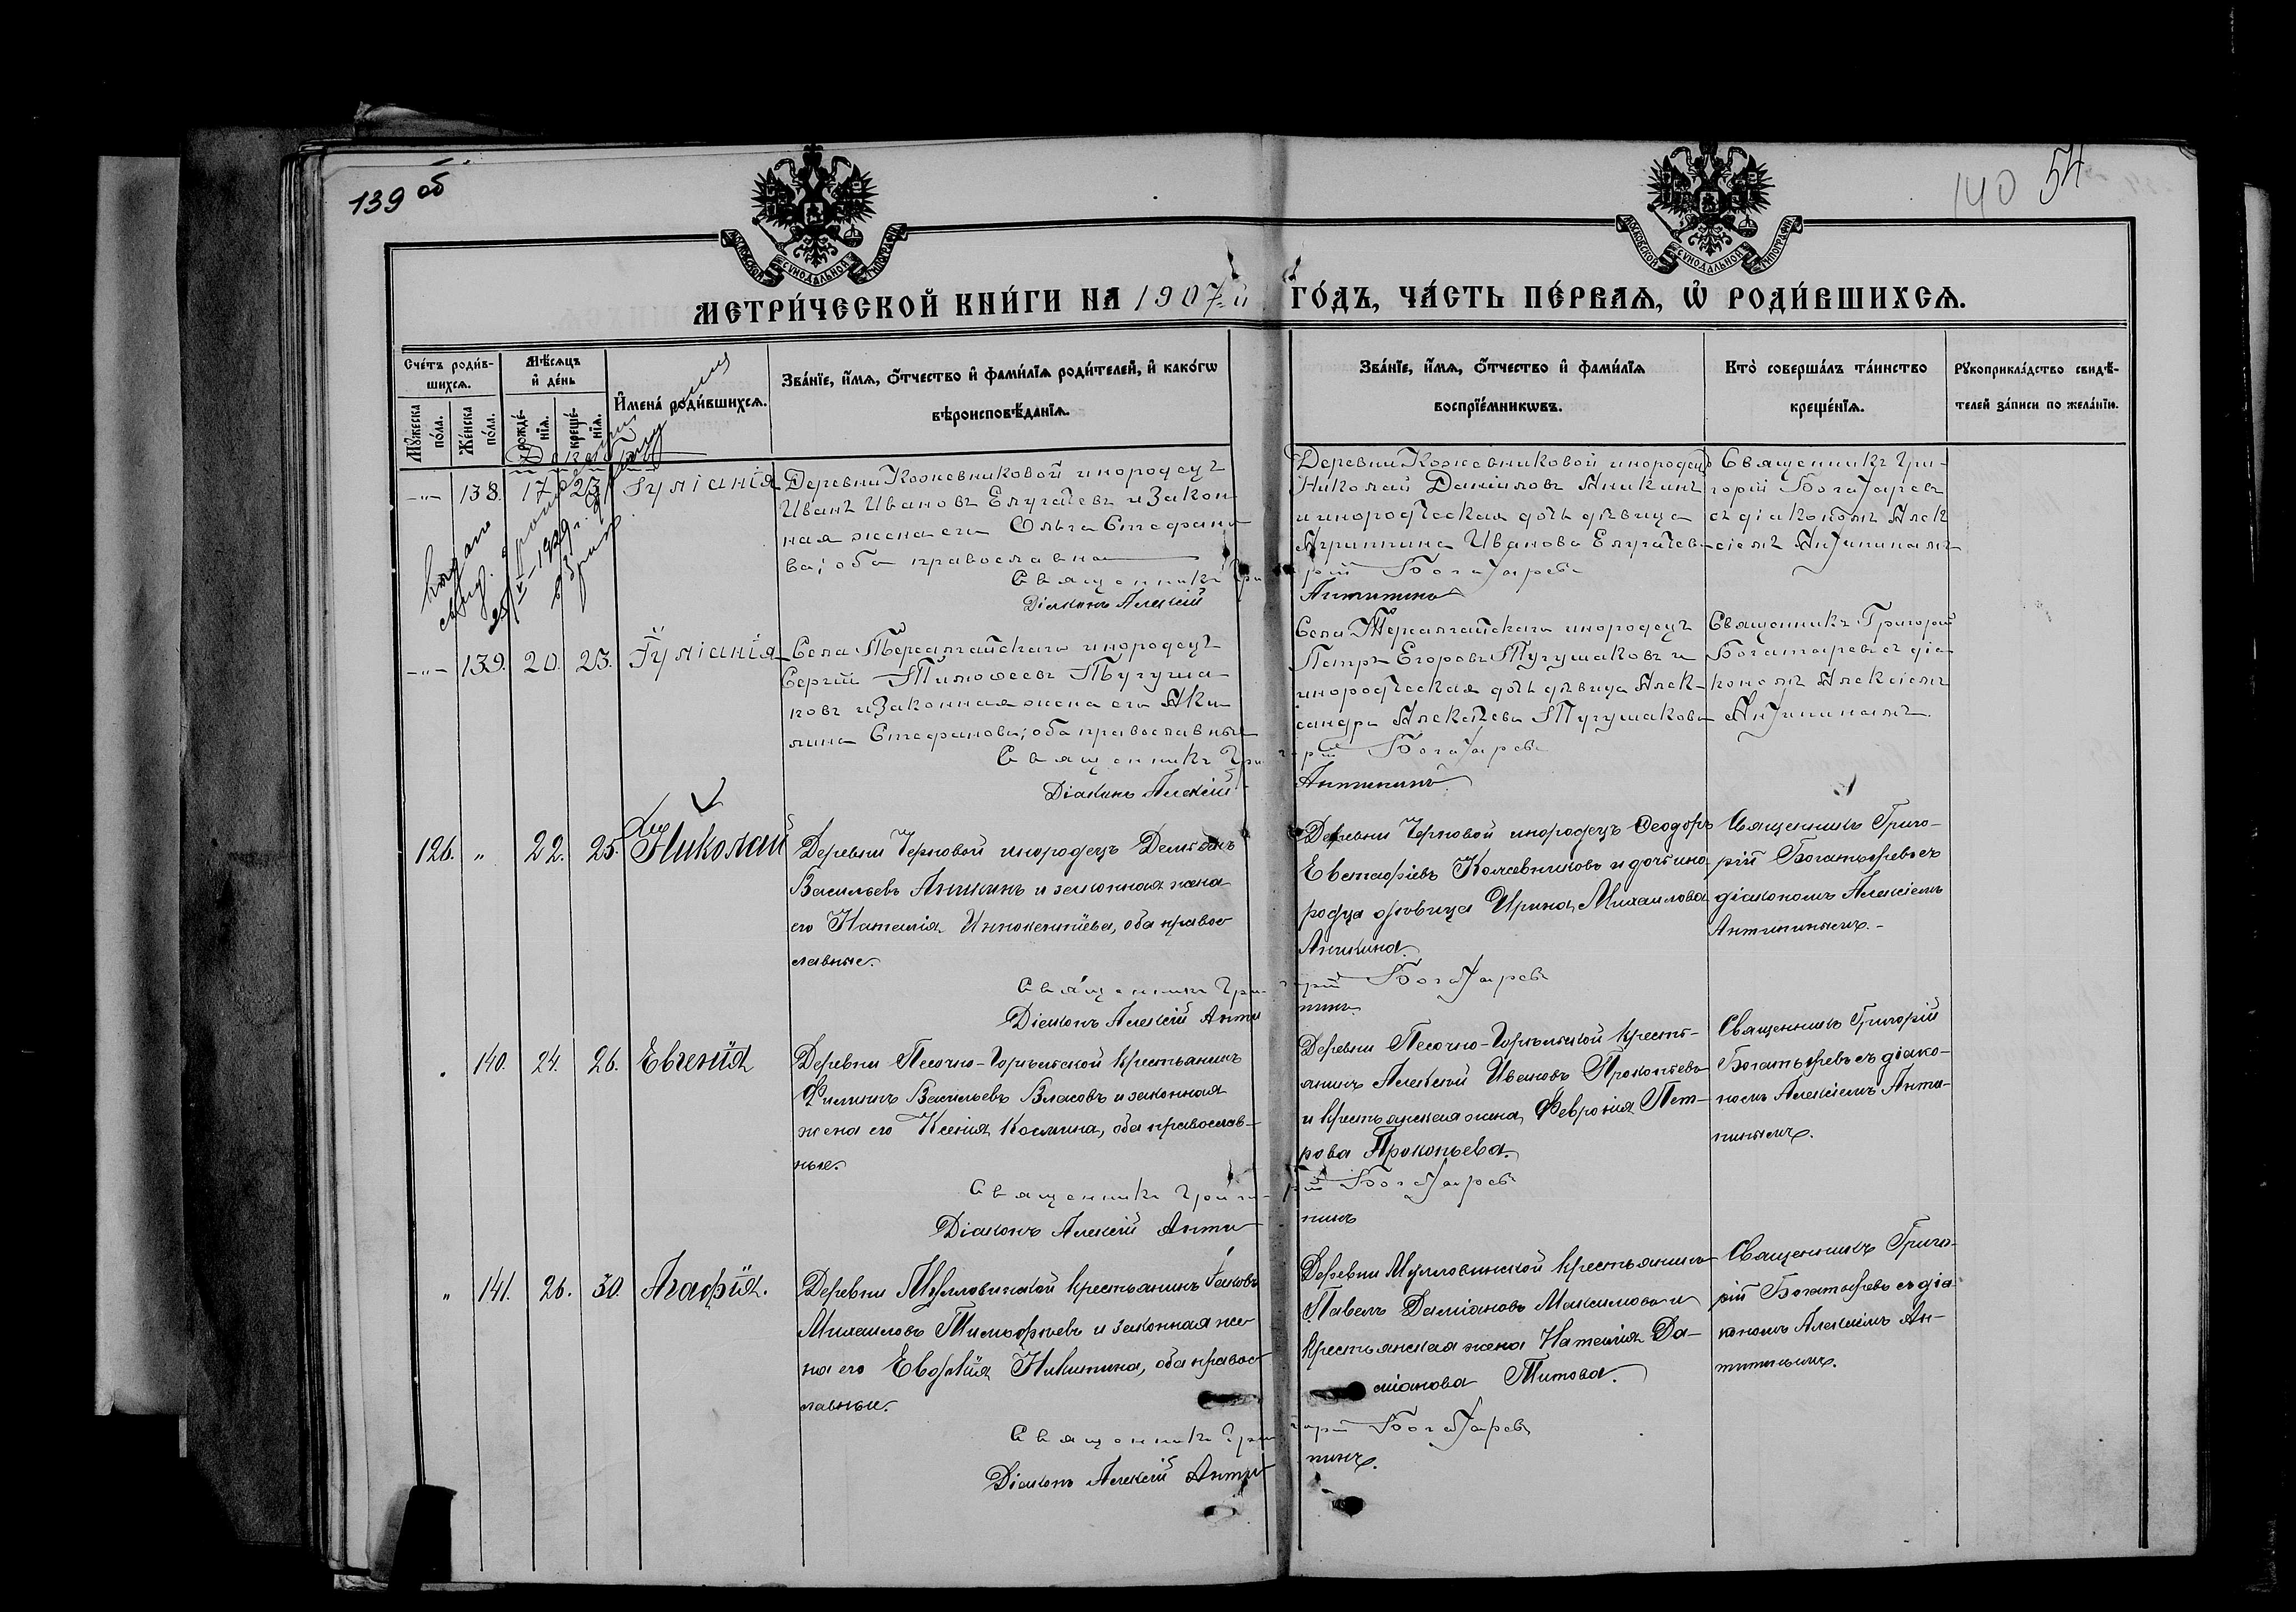 139 об
140 54
МОСКОВСКОЙ СѴНОДАЛЬНОЙ ТИПОГРАФІИ
МОСКОВСКОЙ СѴНОДАЛЬНОЙ ТИПОГРАФІИ
МЕТРИ́ЧЕСКОЙ КНИ́ГИ НА 1907-й ГО́ДЪ, ЧА́СТЬ ПЕ́РВАЯ, Ѽ РОДИ́ВШИХСЯ.
Сче́тъ роди́в-
шихся.
Му́жеска
по́ла.
Же́нска
по́ла.
Мѣ́сяцъ
и де́нь
рожде́-
нія.
креще́-
нія.
Имена́ роди́вшихся.
Зва́ніе, и́мя, о́тчество и фами́лія роди́телей, и како́гѡ
вѣроисповѣ́данія.
Зва́ніе, и́мя, о́тчество и фами́лія
воспріе́мникѡвъ.
Кто̀ соверша́лъ та́инство
креще́нія.
Рукоприкла́дство свидѣ́-
телей за́писи по жела́нію.
Декабрь
-"- 138. 17. 23. Іуліанія
Деревни Кожевниковой инородецъ
Иванъ Ивановъ Елугачевъ и закон-
ная жена его Ольга Стефано-
ва; оба православна
Священникъ Гри
Діаконъ Алексій
Деревни Кожевниковой инородецъ
Николай Даніиловъ Аникинъ
и инородческая дочь дѣвица
Агриппина Иванова Елугачев-
рій Богатырев
Антипинъ
Священникъ Гри-
горій Богатырев
съ діакономъ Алек
сіемъ Антипинымъ
выдано
-"- 139. 20. 23. Іуліанія
Села Тюралгайскаго инородецъ
Сергій Тимофеевъ Тугуша-
ковъ и законная жена его Аки-
лина Стефанова; оба православные
Священникъ Гри
Діаконъ Алексій
Петръ Егоровъ Тугушаковъ и
инородческая дочь дѣвица Алек-
сандра Алексѣева Тугушакова
рій Богатырев
Антипинъ.
Священникъ Григорій
Богатырев съ діа-
кономъ Алексіемъ
Антипинымъ.
126. " 22. 25. Николай
Деревни Черновой инородецъ Деміанъ
Васильевъ Аникинъ и законная жена
его Наталія Иннокентіева, оба правос
лавные.
Священникъ Гри-
Діаконъ Алексій Анти
Деревни Черновой инородецъ Ѳеодоръ
Евстафіевъ Кожевниковъ и дочь ино-
родца дѣвица Ирина Михаилова
Аникина.
рій Богатырев
пинъ.
Священникъ Григо-
рій Богатыревъ съ
діакономъ Алексіемъ
Антипинымъ.-
" 140. 24. 26. Евгенія
Деревни Песочно-Горѣльской крестьянинъ
Филиппъ Васильевъ Власовъ и законная
жена его Ксенія Косьмина, оба православ-
ные.
Священникъ Григо-
Діаконъ Алексій Анти
Деревни Песочно-Горѣльской кресть-
янинъ Алексій Ивановъ Прокопьевъ
и крестьянская жена Февронія Пет-
рова Прокопьева.
рій Богатырев
пинъ
Священникъ Григорій
Богатыревъ съ діако-
номъ Алексіемъ Анти-
пинымъ.
" 141. 26. 30. Агафія.
Деревни Мулловинской крестьянинъ Іаковъ
Михаиловъ Тимофѣевъ и законная же
на его Евдокія Никитина, оба правос
лавные.
Священникъ Гри
Діаконъ Алексій Анти
Деревни Мулловинской крестьянинъ
Павелъ Даміановъ Максимовъ и
крестьянская жена Наталія Да-
міанова Титова.
горій Богатырев
пинъ.
Священникъ Григо-
рій Богатыревъ съ діа
кономъ Алексіемъ Ан-
типинымъ.